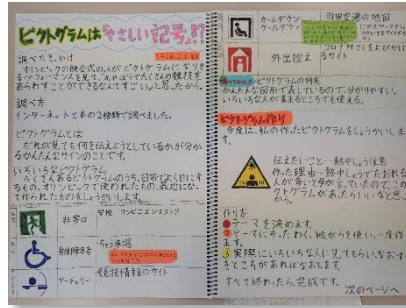 ピクトグラムはやさしい記号!?
調べたきっかけ
オリンピックの開会式の人がピクトグラムになりき
るパフォーマンスを見て、
たくさんの競技を
あらわすことができるなんてすごいな、と思ったから。
調べ方
インターネットと本の2種類で調べました。
ピクトグラムとは
だれが見ても何を伝えどうしているかが分か
るかんたんなサインのことです。
いろいろなピクトグラム
たくさんあるピクトグラムのうち、日常でよく目にす
るもの、オリンピックで使われたもの、最近になっ
て作られたものをしょうかいします。
非常口
学校 コンビニエンスストア
アーチェリー
競技情報のサイト
カームダウン
クールダウン
羽田空港の地図
外出控え
るサイト
ピクトグラムの特長
かんたんな図形で表しているので、分かりやすい。
いろいろな人が集まるところでも使える。
ピクトグラム作り
今度は、私の作ったピクトグラムをしょうかいしま
す。
伝えたいこと…熱中しょう注意
作った理由…熱中しょうでたおれる
人が多いと分かっていたので、この
作り方
①テーマを決めます。
②テーマにそったわく、絵から使い、一度作
ります。
③実際にいろいろな人に見てもらい、なおす
べきところがあればなおします。
すべて終わったら、完成です。
次のページへ